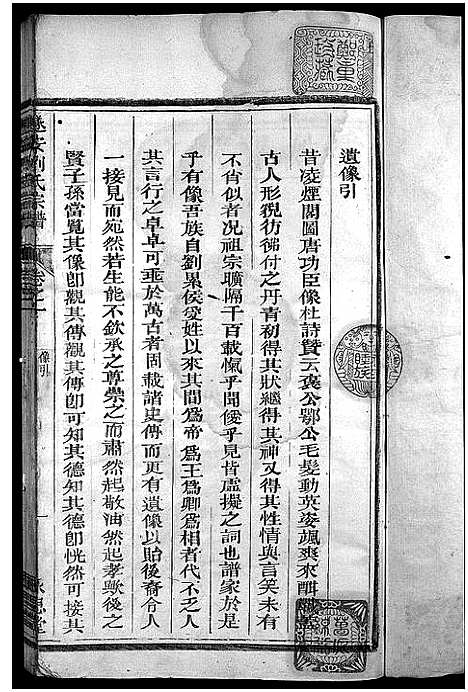 遺像引
昔凌煙閣圖唐功臣像杜詩贊云褒公鄂公毛髮動英姿颯爽來酣
古人形貌彷彿付之丹青初得其狀繼得其神又得其性情與言笑未有
不肖似者况祖宗曠隔千百載愾乎聞僾乎見皆虛擬之詞也譜家於是
乎有像吾族自劉累侯受姓以來其間為帝為王為卿為相者代不乏人
其言行之卓卓可垂於萬古者固載諸史傳而更有遺像以貽後裔令人
一接見而宛然若生能不欽承之尊崇之而肅然起敬油然起孝歟後之
賢子孫當覽其像卽觀其傳觀其傳卽可知其德知其德卽恍然可接其
劉氏宗譜
卷之一
像引